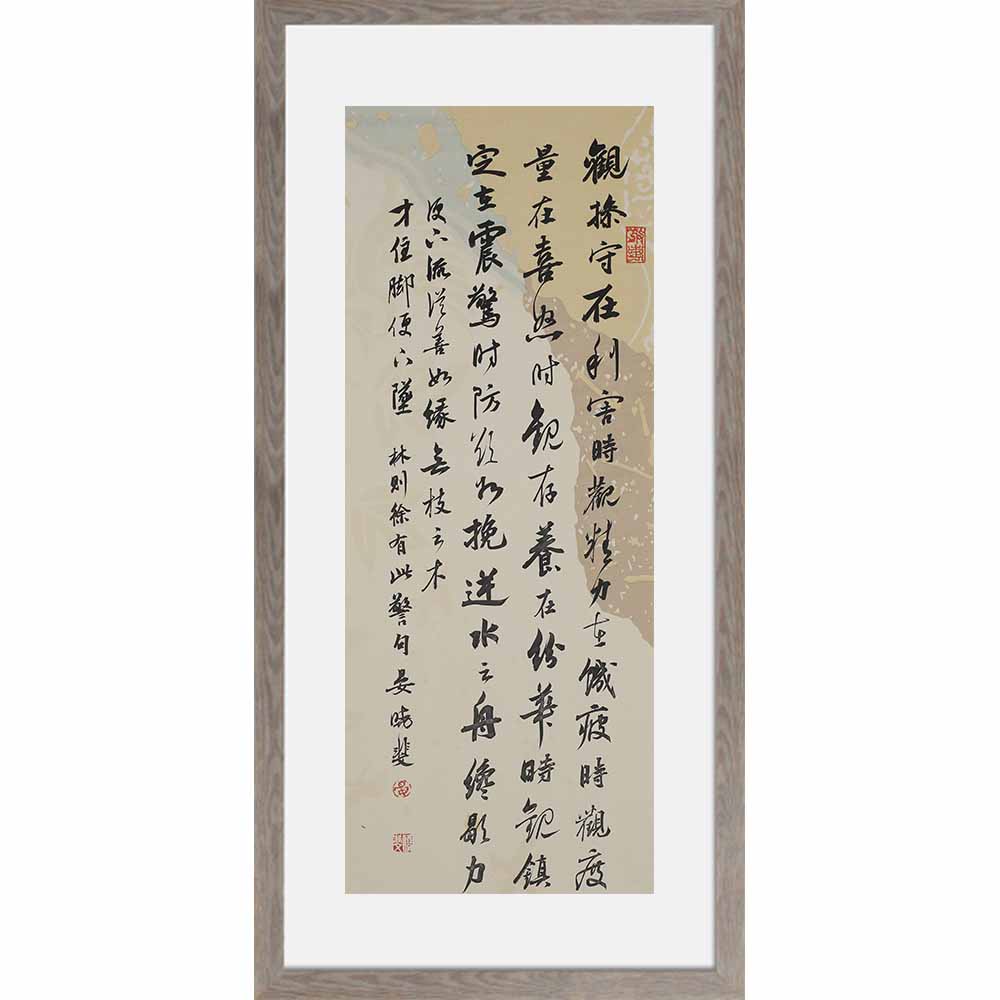 觀操守在利害時觀精力在饑疲時觀度
量在喜怒时觀存養在纷華時觀鎮
定在震驚时防欲如挽逆水之舟纔歇力
便下流從善如緣無枝之木
才住脚便下墜 林则徐有此警句 晏晓斐